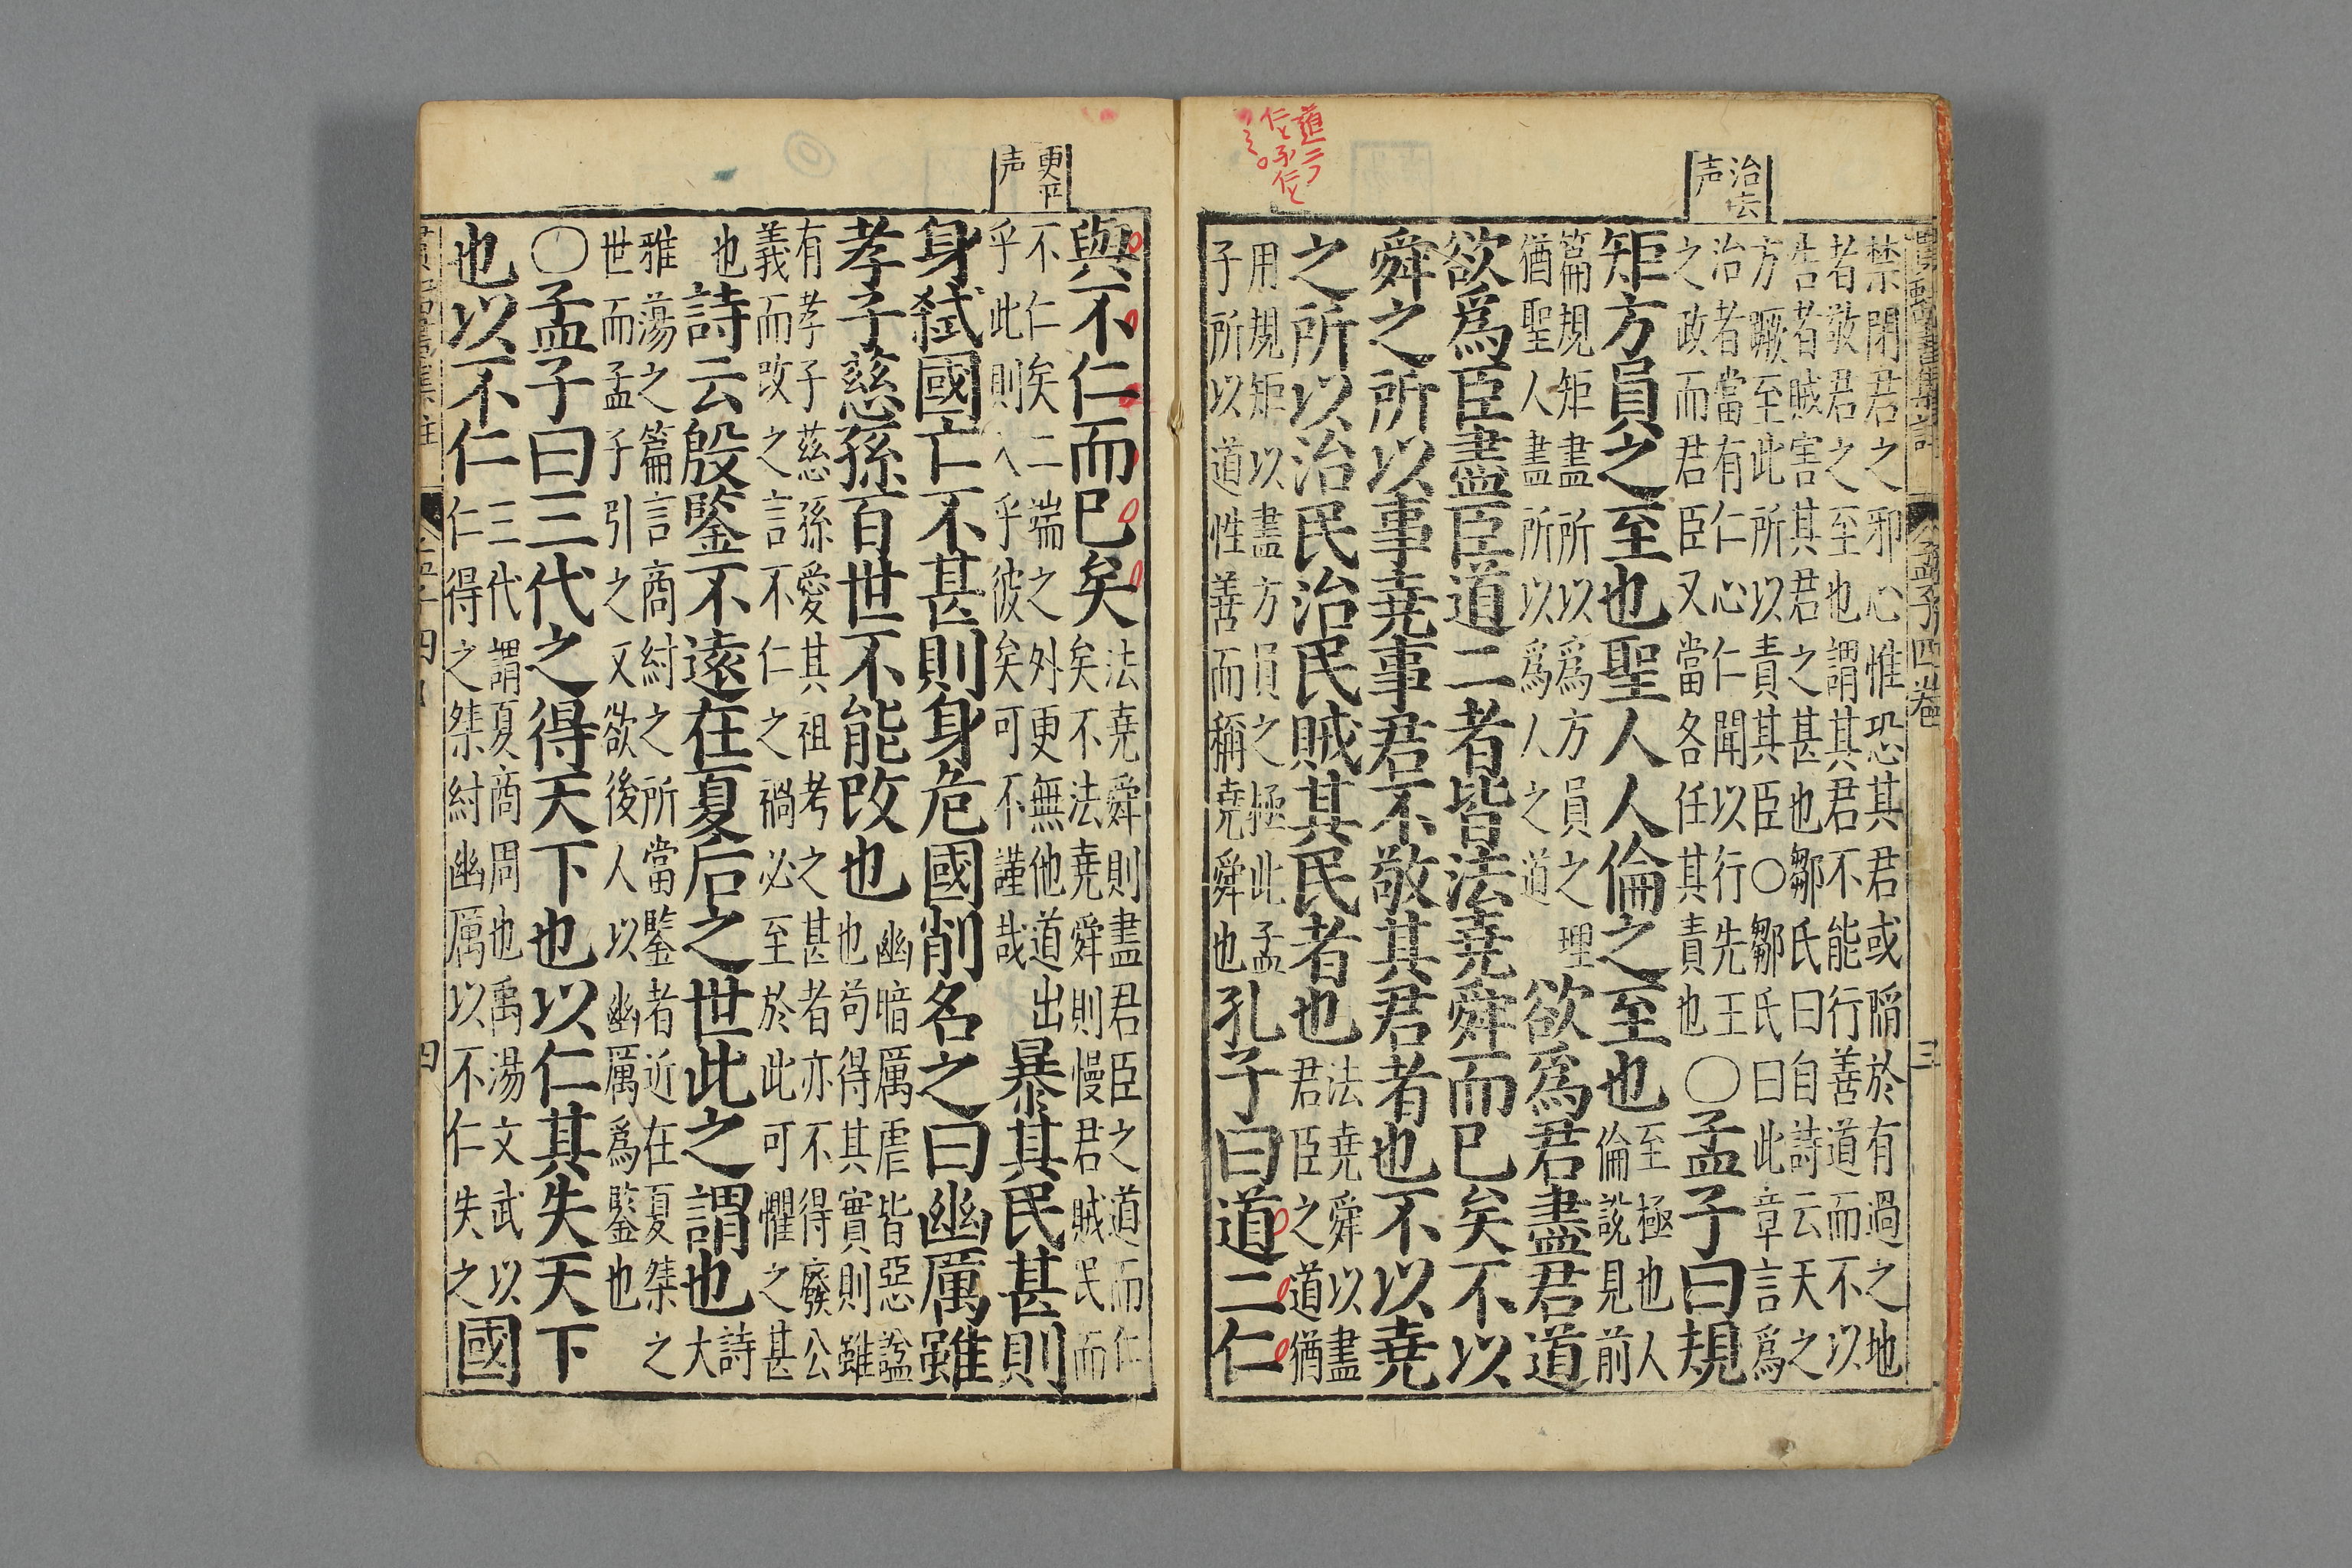 治去
声
道二ツ
仁と不仁と
貫瓢畫集註 孟子四卷 三
禁閉君之邪心惟恐其君或陷於有過之地
者敬君之至也謂其君不能行善道而不以
告者賊害其君之甚也鄒氏曰自詩云天之
方蹶至此所以責其臣〇鄒氏曰此章言爲
治者當有仁心仁聞以行先王
之政而君臣又當各任其責也
〇孟子曰規
矩方員之至也聖人人倫之至也
至極也人
倫說見前
篇規矩盡所以爲方員之理
猶聖人盡所以爲人之道
欲爲君盡君道
欲爲臣盡臣道二者皆法堯舜而已矣不以
舜之所以事堯事君不敬其君者也不以堯
之所以治民治民賊其民者也
法堯舜以盡
君臣之道猶
用規矩以盡方員之極此孟
子所以道性善而稱堯舜也
孔子曰道二仁
更平
声
與不仁而已矣
法堯舜則盡君臣之道而仁
矣不法堯舜則慢君賊民而
不仁矣二端之外更無他道出
乎此則入乎彼矣可不謹哉
暴其民甚則
身弒國亡不甚則身危國削名之曰幽厲雖
孝子慈孫百世不能改也
幽暗厲虐皆惡謚
也苟得其實則雖
有孝子慈孫愛其祖考之甚者亦不得廢公
義而改之言不仁之禍必至於此可懼之甚
也
詩云殷鑒不遠在夏后之世此之謂也
詩
大
雅蕩之篇言商紂之所當鑒者近在夏桀之
世而孟子引之又欲後人以幽厲爲鑒也
〇孟子曰三代之得天下也以仁其失天下
也以不仁
三代謂夏商周也禹湯文武以
仁得之桀紂幽厲以不仁失之
國
四